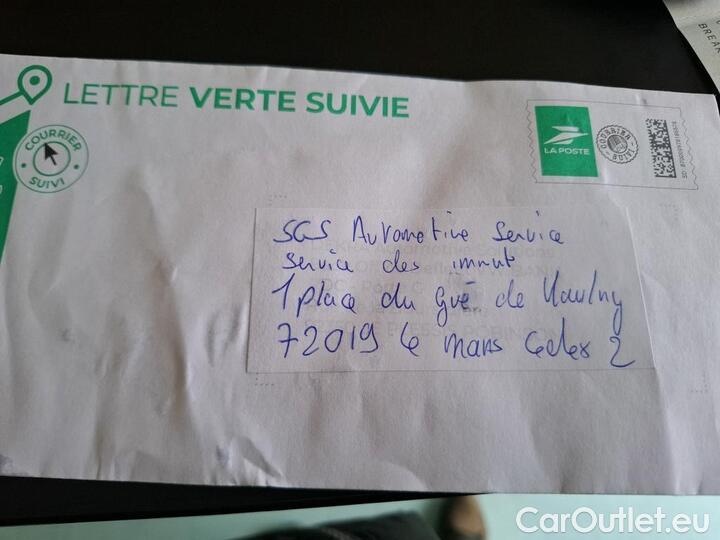 BREAK
LETTRE VERTE SUIVIE
COURRIER
SUIVI
LA POSTE
COURRIER
SUIVI
SGS Automotive Service
Service des immat
1 place du Gué de Maulny
72019 Le Mans Cedex 2
CarOutlet.eu